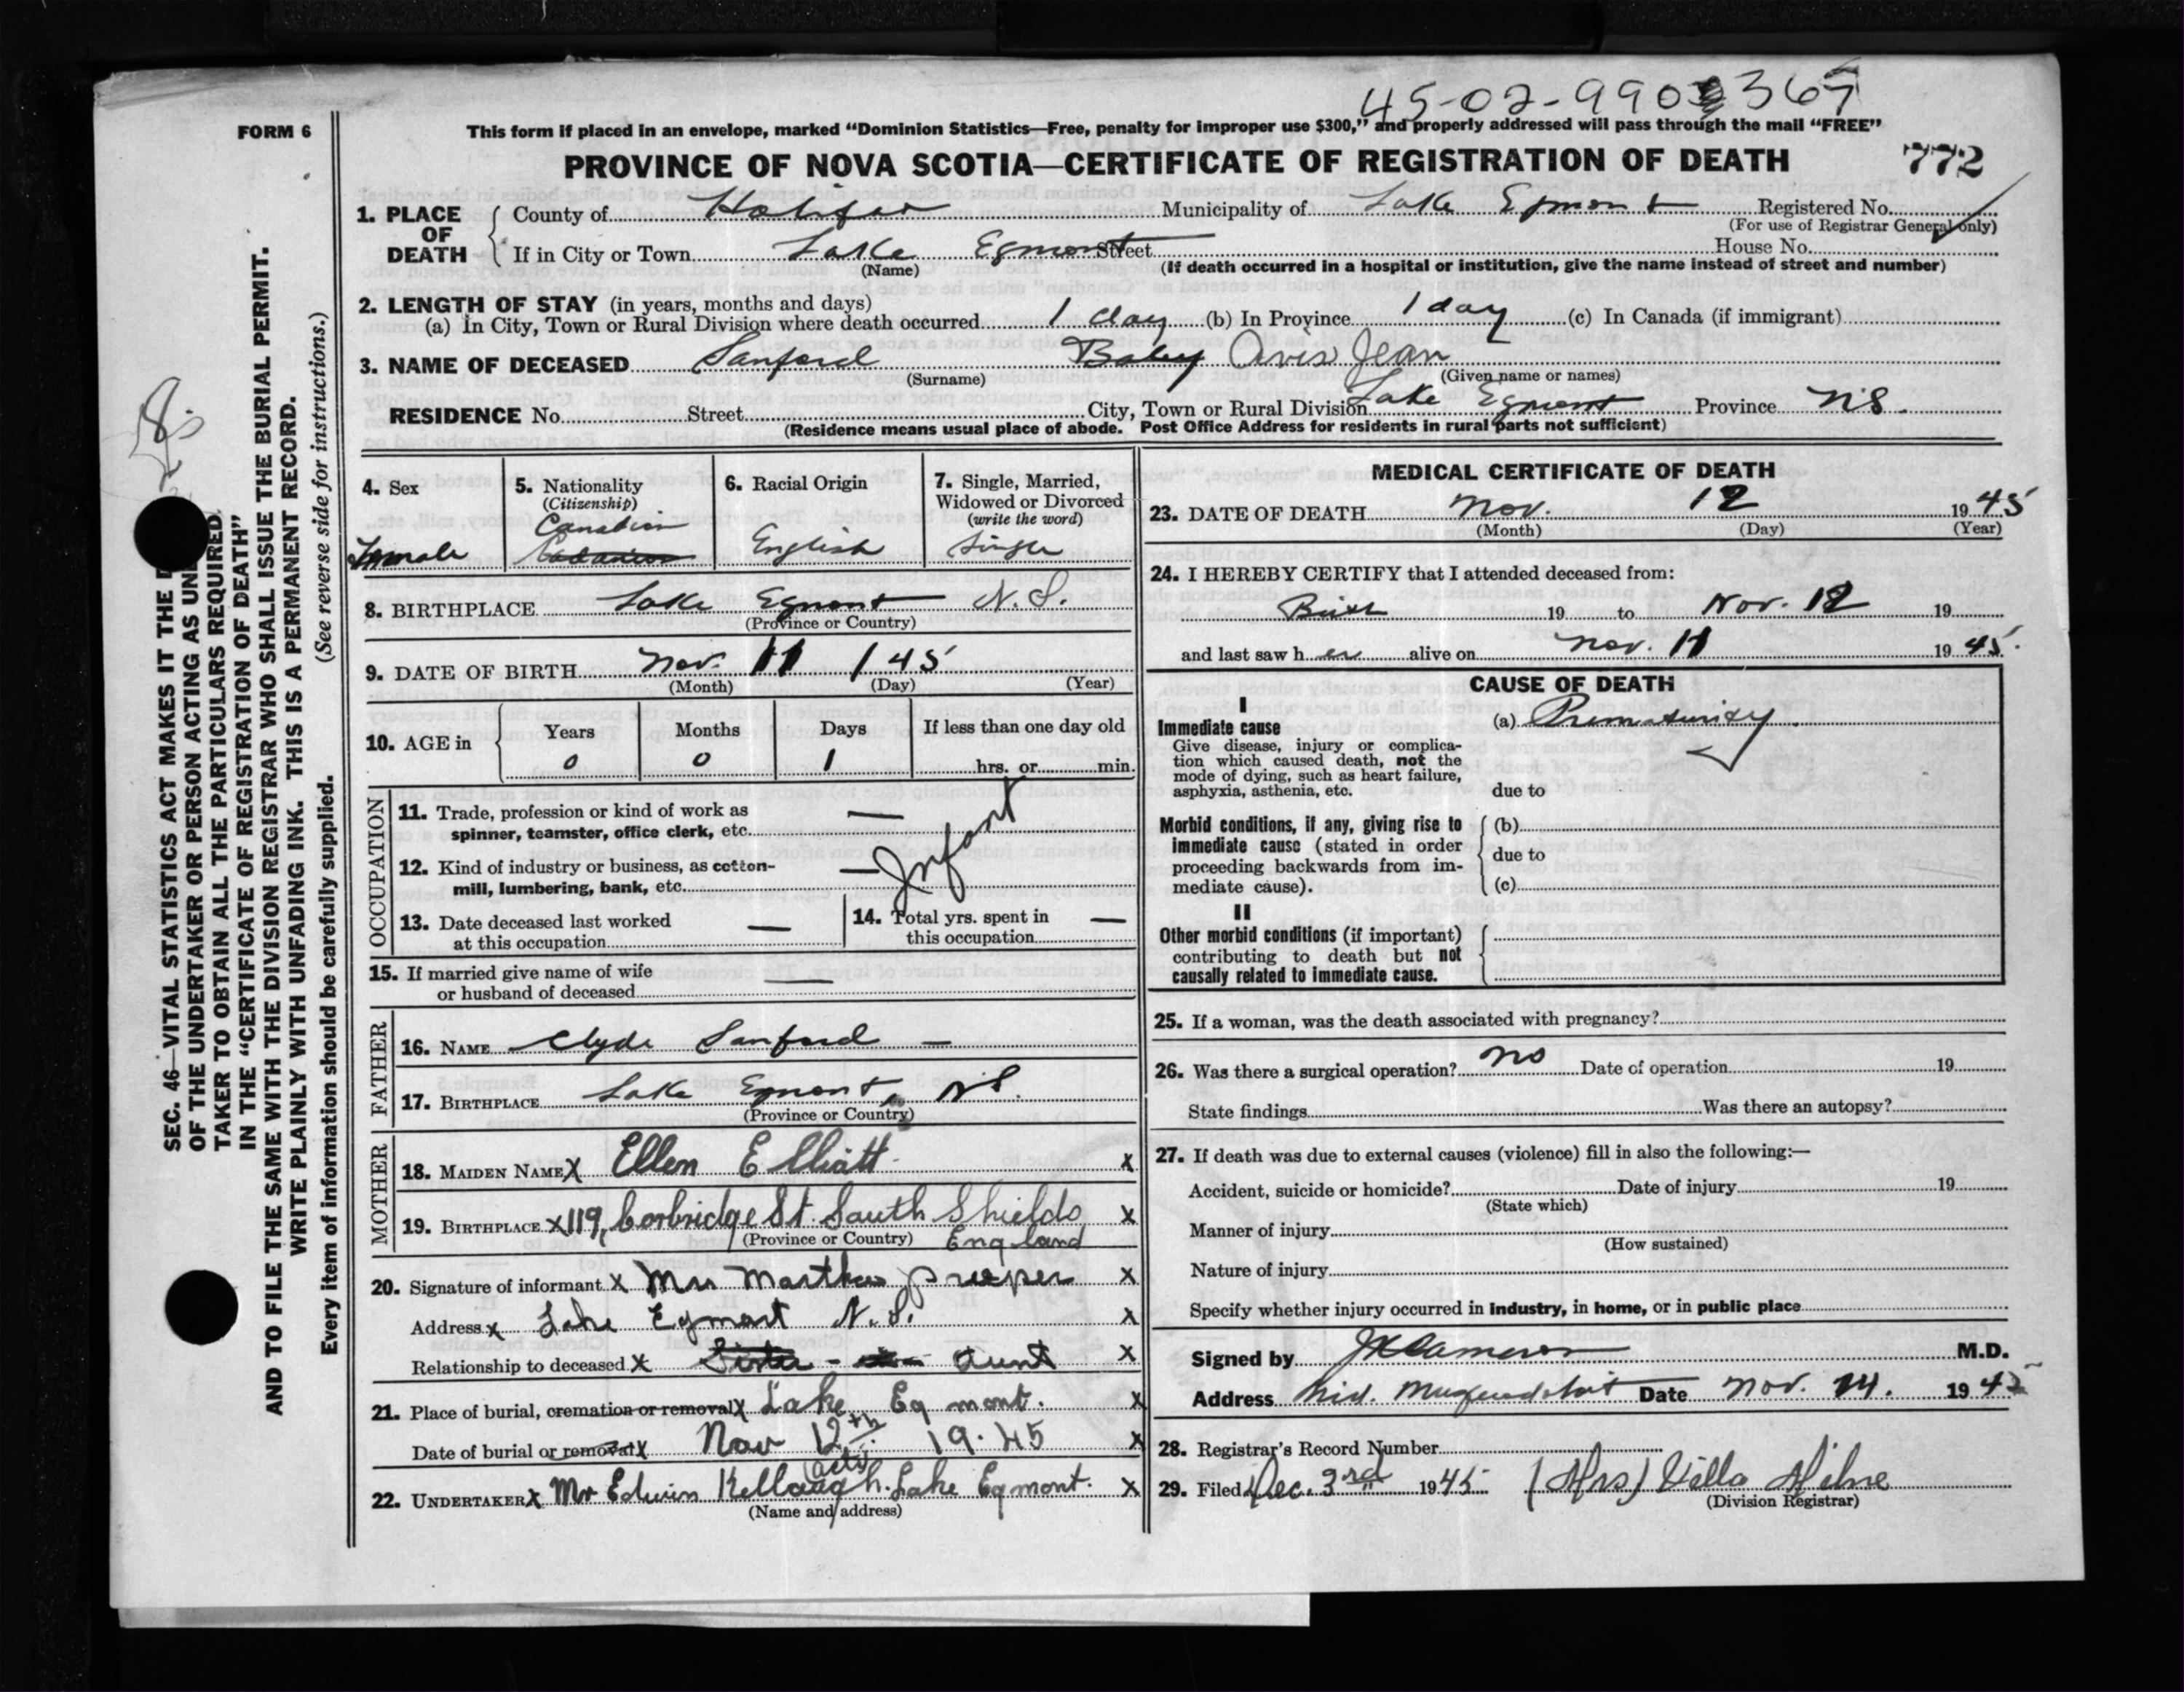 45-02-990 367
FORM 6
This form if placed in an envelope, marked “Dominion Statistics—Free, penalty for improper use $300,” and properly addressed will pass through the mail “FREE”
PROVINCE OF NOVA SCOTIA—CERTIFICATE OF REGISTRATION OF DEATH 772
1. PLACE OF DEATH
County of Halifax Municipality of Lake Egmont Registered No.
(For use of Registrar General only)
If in City or Town Lake Egmont Street House No.
(Name) (If death occurred in a hospital or institution, give the name instead of street and number)
2. LENGTH OF STAY (in years, months and days)
(a) In City, Town or Rural Division where death occurred 1 day (b) In Province 1 day (c) In Canada (if immigrant)
3. NAME OF DECEASED Sanford Baby Avis Jean
(Surname) (Given name or names)
RESIDENCE No. Street City, Town or Rural Division Lake Egmont Province N.S.
(Residence means usual place of abode. Post Office Address for residents in rural parts not sufficient)
4. Sex
Female
5. Nationality
(Citizenship)
Canadian
6. Racial Origin
English
7. Single, Married,
Widowed or Divorced
(write the word)
Single
8. BIRTHPLACE Lake Egmont N.S.
(Province or Country)
9. DATE OF BIRTH Nov. 11 1 45
(Month) (Day) (Year)
10. AGE in
Years Months Days If less than one day old
0 0 1 hrs. or min.
OCCUPATION
11. Trade, profession or kind of work as —
spinner, teamster, office clerk, etc.
Infant
12. Kind of industry or business, as cotton- —
mill, lumbering, bank, etc.
13. Date deceased last worked —
at this occupation
14. Total yrs. spent in —
this occupation
15. If married give name of wife —
or husband of deceased
FATHER
16. NAME Clyde Sanford —
17. BIRTHPLACE Lake Egmont, N.S.
(Province or Country)
MOTHER
18. MAIDEN NAME X Ellen Elliatt X
19. BIRTHPLACE X 119, Corbridge St. South Shields X
(Province or Country) England
20. Signature of informant X Mrs Martha Preeper X
Address X Lake Egmont N.S. X
Relationship to deceased X Sister - Aunt X
21. Place of burial, cremation or removal X Lake Egmont. X
Date of burial or removal X Nov 12th 19.45 X
(acts)
22. UNDERTAKER X Mr Edwin Kellough. Lake Egmont. X
(Name and address)
MEDICAL CERTIFICATE OF DEATH
23. DATE OF DEATH Nov. 12 1945
(Month) (Day) (Year)
24. I HEREBY CERTIFY that I attended deceased from:
Birth 19 to Nov. 12 19
and last saw her alive on Nov. 11 1945.
CAUSE OF DEATH
I
Immediate cause
Give disease, injury or complica-
tion which caused death, not the
mode of dying, such as heart failure,
asphyxia, asthenia, etc.
(a) Prematurity.
due to
Morbid conditions, if any, giving rise to
immediate cause (stated in order
proceeding backwards from im-
mediate cause).
(b)
due to
(c)
II
Other morbid conditions (if important)
contributing to death but not
causally related to immediate cause.
25. If a woman, was the death associated with pregnancy?
26. Was there a surgical operation? No Date of operation 19
State findings Was there an autopsy?
27. If death was due to external causes (violence) fill in also the following:—
Accident, suicide or homicide? Date of injury 19
(State which)
Manner of injury
(How sustained)
Nature of injury
Specify whether injury occurred in industry, in home, or in public place
Signed by Cameron M.D.
Address Mid. Musquodoboit Date Nov. 14. 1945
28. Registrar's Record Number
29. Filed Dec. 3rd 1945 (Mrs) Villa Milne
(Division Registrar)
SEC. 46—VITAL STATISTICS ACT MAKES IT THE
OF THE UNDERTAKER OR PERSON ACTING AS UN
TAKER TO OBTAIN ALL THE PARTICULARS REQUIRED
IN THE “CERTIFICATE OF REGISTRATION OF DEATH”
AND TO FILE THE SAME WITH THE DIVISION REGISTRAR WHO SHALL ISSUE THE BURIAL PERMIT.
WRITE PLAINLY WITH UNFADING INK. THIS IS A PERMANENT RECORD.
Every item of information should be carefully supplied. (See reverse side for instructions.)